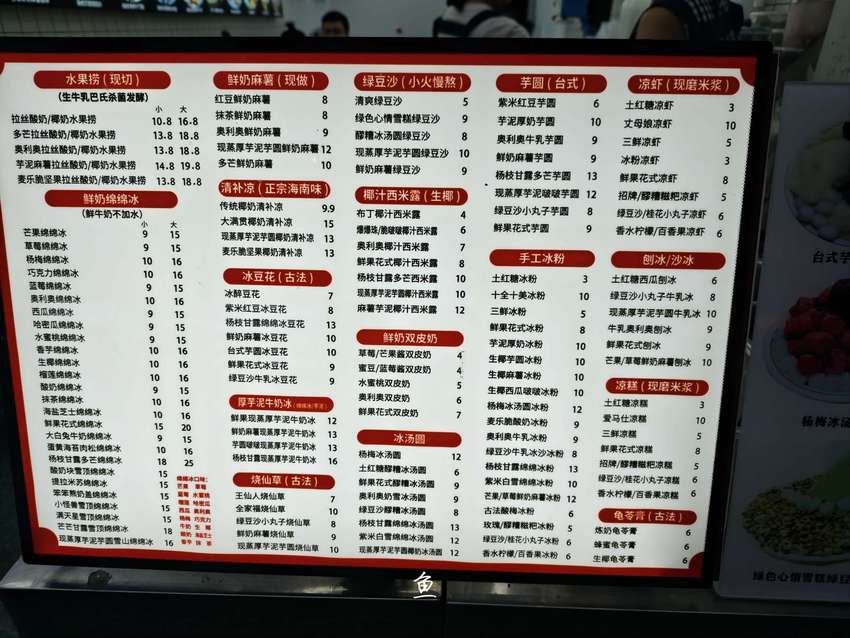 水果捞(现切)
(生牛乳巴氏杀菌发酵)
小 大
拉丝酸奶/椰奶水果捞 10.8 16.8
多芒拉丝酸奶/椰奶水果捞 13.8 18.8
奥利奥拉丝酸奶/椰奶水果捞 13.8 18.8
芋泥麻薯拉丝酸奶/椰奶水果捞 14.8 19.8
麦乐脆坚果拉丝酸奶/椰奶水果捞 13.8 18.8
鲜奶绵绵冰
(鲜牛奶不加水)
小 大
芒果绵绵冰 9 15
草莓绵绵冰 9 15
杨梅绵绵冰 10 16
巧克力绵绵冰 10 16
蓝莓绵绵冰 9 15
奥利奥绵绵冰 10 16
西瓜绵绵冰 9 15
哈密瓜绵绵冰 9 15
水蜜桃绵绵冰 9 15
香芋绵绵冰 10 16
生椰绵绵冰 10 16
榴莲绵绵冰 10 16
酸奶绵绵冰 9 15
抹茶绵绵冰 10 16
海盐芝士绵绵冰 10 16
鲜果花式绵绵冰 15 20
大白兔牛奶绵绵冰 9 15
蛋黄海苔肉松绵绵冰 10 16
杨枝甘露多芒绵绵冰 18 25
酸奶块雪顶绵绵冰 15
提拉米苏绵绵冰 15
笨笨熊奶盖绵绵冰 15
小怪兽雪顶绵绵冰 15
满天星雪顶绵绵冰 15
芒芒甘露雪顶绵绵冰 18
现蒸厚芋泥芋圆雪山绵绵冰 16
绵绵冰口味:
芒果 草莓
蓝莓 水蜜桃
榴莲 哈密瓜
西瓜 奥利奥
杨梅 巧克力
牛奶 生椰
酸奶 海盐芝士
香芋 抹茶
鲜奶麻薯(现做)
红豆鲜奶麻薯 8
抹茶鲜奶麻薯 8
奥利奥鲜奶麻薯 9
现蒸厚芋泥芋圆鲜奶麻薯 12
多芒鲜奶麻薯 10
清补凉(正宗海南味)
传统椰奶清补凉 9.9
大满贯椰奶清补凉 15
现蒸厚芋泥芋圆椰奶清补凉 13
麦乐脆坚果椰奶清补凉 13
冰豆花(古法)
冰醉豆花 7
紫米红豆冰豆花 8
杨枝甘露绵绵冰豆花 13
鲜奶麻薯冰豆花 10
台式芋圆冰豆花 10
鲜果花式冰豆花 8
绿豆沙牛乳冰豆花 9
厚芋泥牛奶冰(绵绵冰/芋泥)
鲜果现蒸厚芋泥牛奶冰 12
鲜奶麻薯现蒸厚芋泥牛奶冰 13
芋圆啵啵现蒸厚芋泥牛奶冰 13
杨枝甘露现蒸厚芋泥牛奶冰 16
烧仙草(古法)
王仙人烧仙草 7
全家福烧仙草 10
绿豆沙小丸子烧仙草 8
鲜奶麻薯烧仙草 9
现蒸厚芋泥芋圆烧仙草 10
绿豆沙(小火慢熬)
清爽绿豆沙 5
绿色心情雪糕绿豆沙 9
醪糟小丸子绿豆沙 8
现蒸厚芋泥芋圆绿豆沙 10
鲜奶麻薯绿豆沙 9
椰汁西米露(生椰)
布丁椰汁西米露 4
爆爆珠/脆啵啵椰汁西米露 6
奥利奥椰汁西米露 7
鲜果花式椰汁西米露 8
杨枝甘露多芒西米露 10
现蒸厚芋泥芋圆椰汁西米露 10
麻薯芋泥椰汁西米露 12
鲜奶双皮奶
草莓/芒果酱双皮奶 4
蜜豆/蓝莓酱双皮奶 4
水蜜桃双皮奶 5
奥利奥双皮奶 6
鲜果花式双皮奶 7
冰汤圆
杨梅冰汤圆 12
土红糖醪糟冰汤圆 6
鲜果花式冰汤圆 9
奥利奥奶雪冰汤圆 9
绿豆沙醪糟冰汤圆 8
杨枝甘露绵绵冰汤圆 13
紫米白雪绵绵冰汤圆 10
现蒸厚芋泥芋圆椰奶冰汤圆 12
芋圆(台式)
紫米红豆芋圆 6
芋泥厚奶芋圆 10
奥利奥牛乳芋圆 9
鲜奶麻薯芋圆 9
杨枝甘露多芒芋圆 13
现蒸厚芋泥啵啵芋圆 12
绿豆沙小丸子芋圆 8
鲜果花式芋圆 9
手工冰粉
土红糖冰粉 3
十全十美冰粉 10
三鲜冰粉 5
鲜果花式冰粉 8
芋泥厚奶冰粉 10
生椰芋圆冰粉 10
生椰麻薯冰粉 10
生椰西瓜啵啵冰粉 10
杨梅冰汤圆冰粉 12
麦乐脆酸奶冰粉 9
奥利奥牛乳冰粉 9
绿豆沙牛乳冰沙冰粉 8
杨枝甘露绵绵冰粉 13
紫米白雪绵绵冰粉 10
芒果/草莓鲜奶麻薯冰粉 12
古法酸梅冰粉 6
玫瑰/醪糟糍粑冰粉 5
绿豆沙/桂花小丸子冰粉 6
香水柠檬/百香果冰粉 6
凉虾(现磨米浆)
土红糖凉虾 3
丈母娘凉虾 10
三鲜凉虾 5
冰粉凉虾 3
鲜果花式凉虾 8
招牌/醪糟糍粑凉虾 5
绿豆沙/桂花小丸子凉虾 6
香水柠檬/百香果凉虾 6
刨冰/沙冰
土红糖西瓜刨冰 6
绿豆沙小丸子牛乳冰 8
现蒸厚芋泥芋圆牛乳冰 10
牛乳奥利奥刨冰 9
鲜果花式刨冰 9
芒果/草莓鲜奶麻薯刨冰 10
凉糕(现磨米浆)
土红糖凉糕 3
爱马仕凉糕 10
三鲜凉糕 5
鲜果花式凉糕 8
招牌/醪糟糍粑凉糕 5
绿豆沙/桂花小丸子凉糕 6
香水柠檬/百香果凉糕 6
龟苓膏(古法)
炼奶龟苓膏 6
蜂蜜龟苓膏 6
生椰龟苓膏 6
台式芋
杨梅冰汤
绿色心情雪糕绿豆
鱼